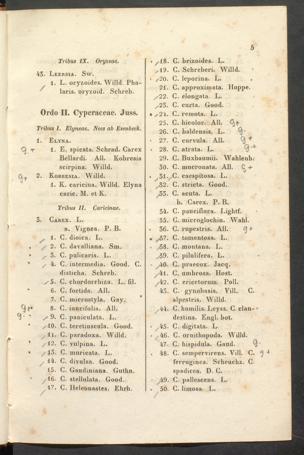 5
Tribus IX. Oryzeae.
43. Leersia. Sw.
1. L. oryzoides. Willd. Pha-
laris. oryzoid. Schreb.
Ordo II. Cyperaceae. Juss.
Tribus I. Elyneae. Nees ab Esenbeck.
1. Elyna.
1. E. spicata. Schrad. Carex
Bellardi. All. Kobresia
scirpina. Willd.
2. Kobresia. Willd.
1. K. caricina. Willd. Elyna
caric. M. et K.
Tribus II. Caricinae.
3. Carex. L.
a. Vignea. P. B.
1. C. dioica. L.
2. C. davalliana. Sm.
3. C. pulicaris. L.
4. C. intermedia. Good. C.
disticha. Schreb.
5. C. chordorrhiza. L. fil.
6. C. foetida. All.
7. C. microstyla. Gay.
8. C. incurva. All.
9. C. paniculata. L.
10. C. teretiuscula. Good.
11. C. paradoxa. Willd.
12. C. vulpina. L.
13. C. muricata. L.
14. C. divulsa. Good.
15. C. Gaudiniana. Guthn.
16. C. stellulata. Good.
17. C. Heleonastes. Ehrh.
18. C. brizoides. L.
19. C. Schreberi. Willd.
20. C. leporina. L.
21. C. approximata. Hoppe.
22. C. elongata. L.
23. C. curta. Good.
24. C. remota. L.
25. C. bicolor. All.
26. C. baldensis. L.
27. C. curvula. All.
28. C. atrata. L.
29. C. Buxbaumii. Wahlenb.
30. C. mucronata. All.
31. C. caespitosa. L.
32. C. stricta. Good.
33. C. acuta. L.
b. Carex. P. B.
34. C. pauciflora. Lightf.
35. C. microglochin. Wahl.
36. C. rupestris. All.
37. C. tomentosa. L.
38. C. montana. L.
39. C. pilulifera. L.
40. C. praecox. Jacq.
41. C. umbrosa. Host.
42. C. ericetorum. Poll.
43. C. gynobasis. Vill. C.
alpestris. Willd.
44. C. humilis. Leyss. C clan-
destina. Engl. bot.
45. C. digitata. L.
46. C. ornithopoda. Willd.
47. C. hispidula. Gaud.
48. C. sempervirens. Vill. C.
ferruginea. Scheuchz. C.
spadicea. D C.
49. C. pallescens. L.
50. C. limosa. L.